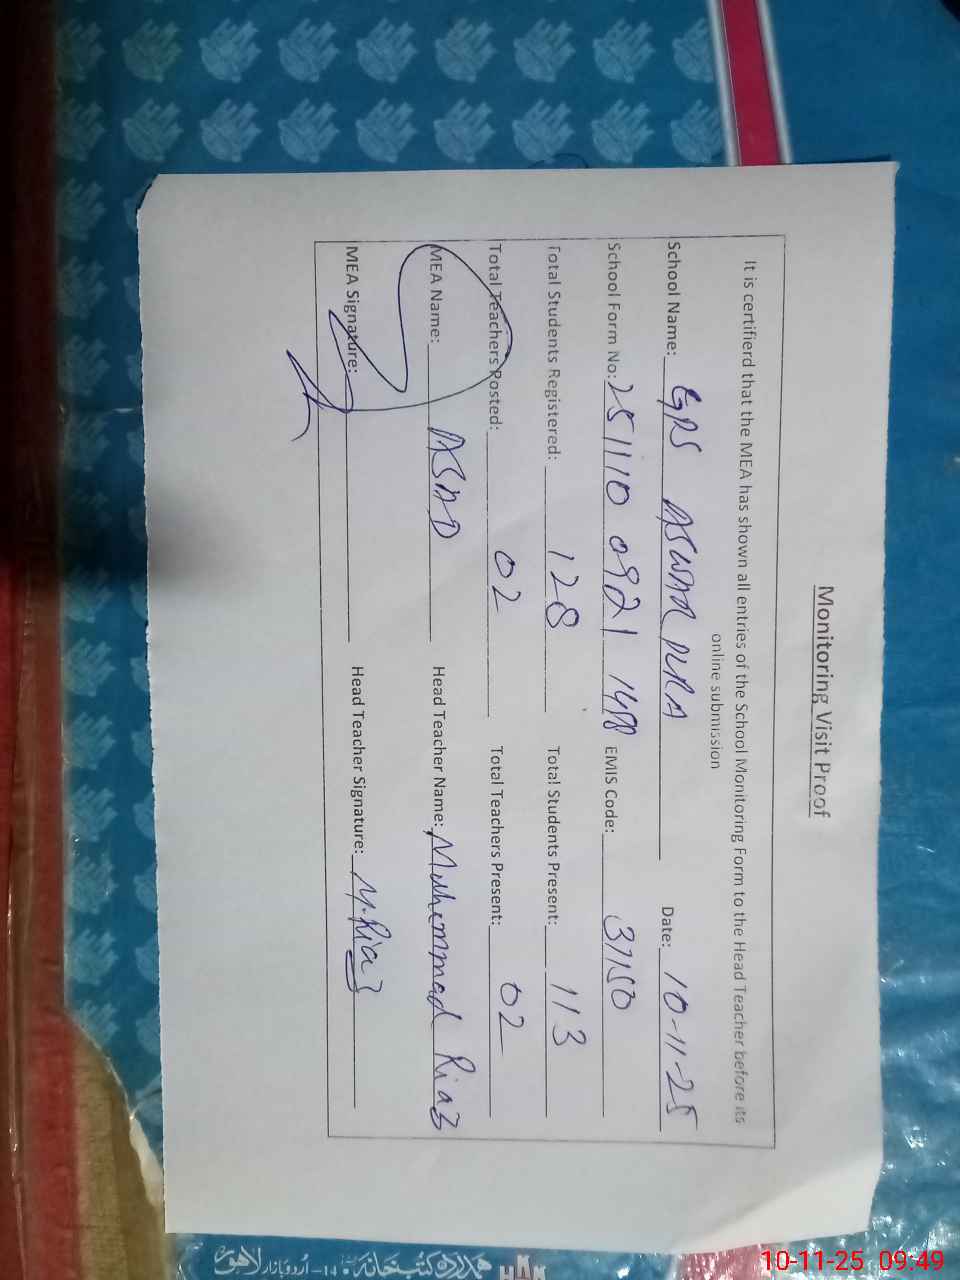 Monitoring Visit Proof
It is certifierd that the MEA has shown all entries of the School Monitoring Form to the Head Teacher before its
online submission
School Name: GPS ASWAR PURA Date: 10-11-25
School Form No: 251110 0921 1478 EMIS Code: 37150
Total Students Registered: 128 Total Students Present: 113
Total Teachers Posted: 02 Total Teachers Present: 02
MEA Name: ASAD Head Teacher Name: Muhemmad Riaz
MEA Signature: Head Teacher Signature: M.Riaz
ہمدرد کتب خانہ 14-اردو بازار لاہور
10-11-25 09:49